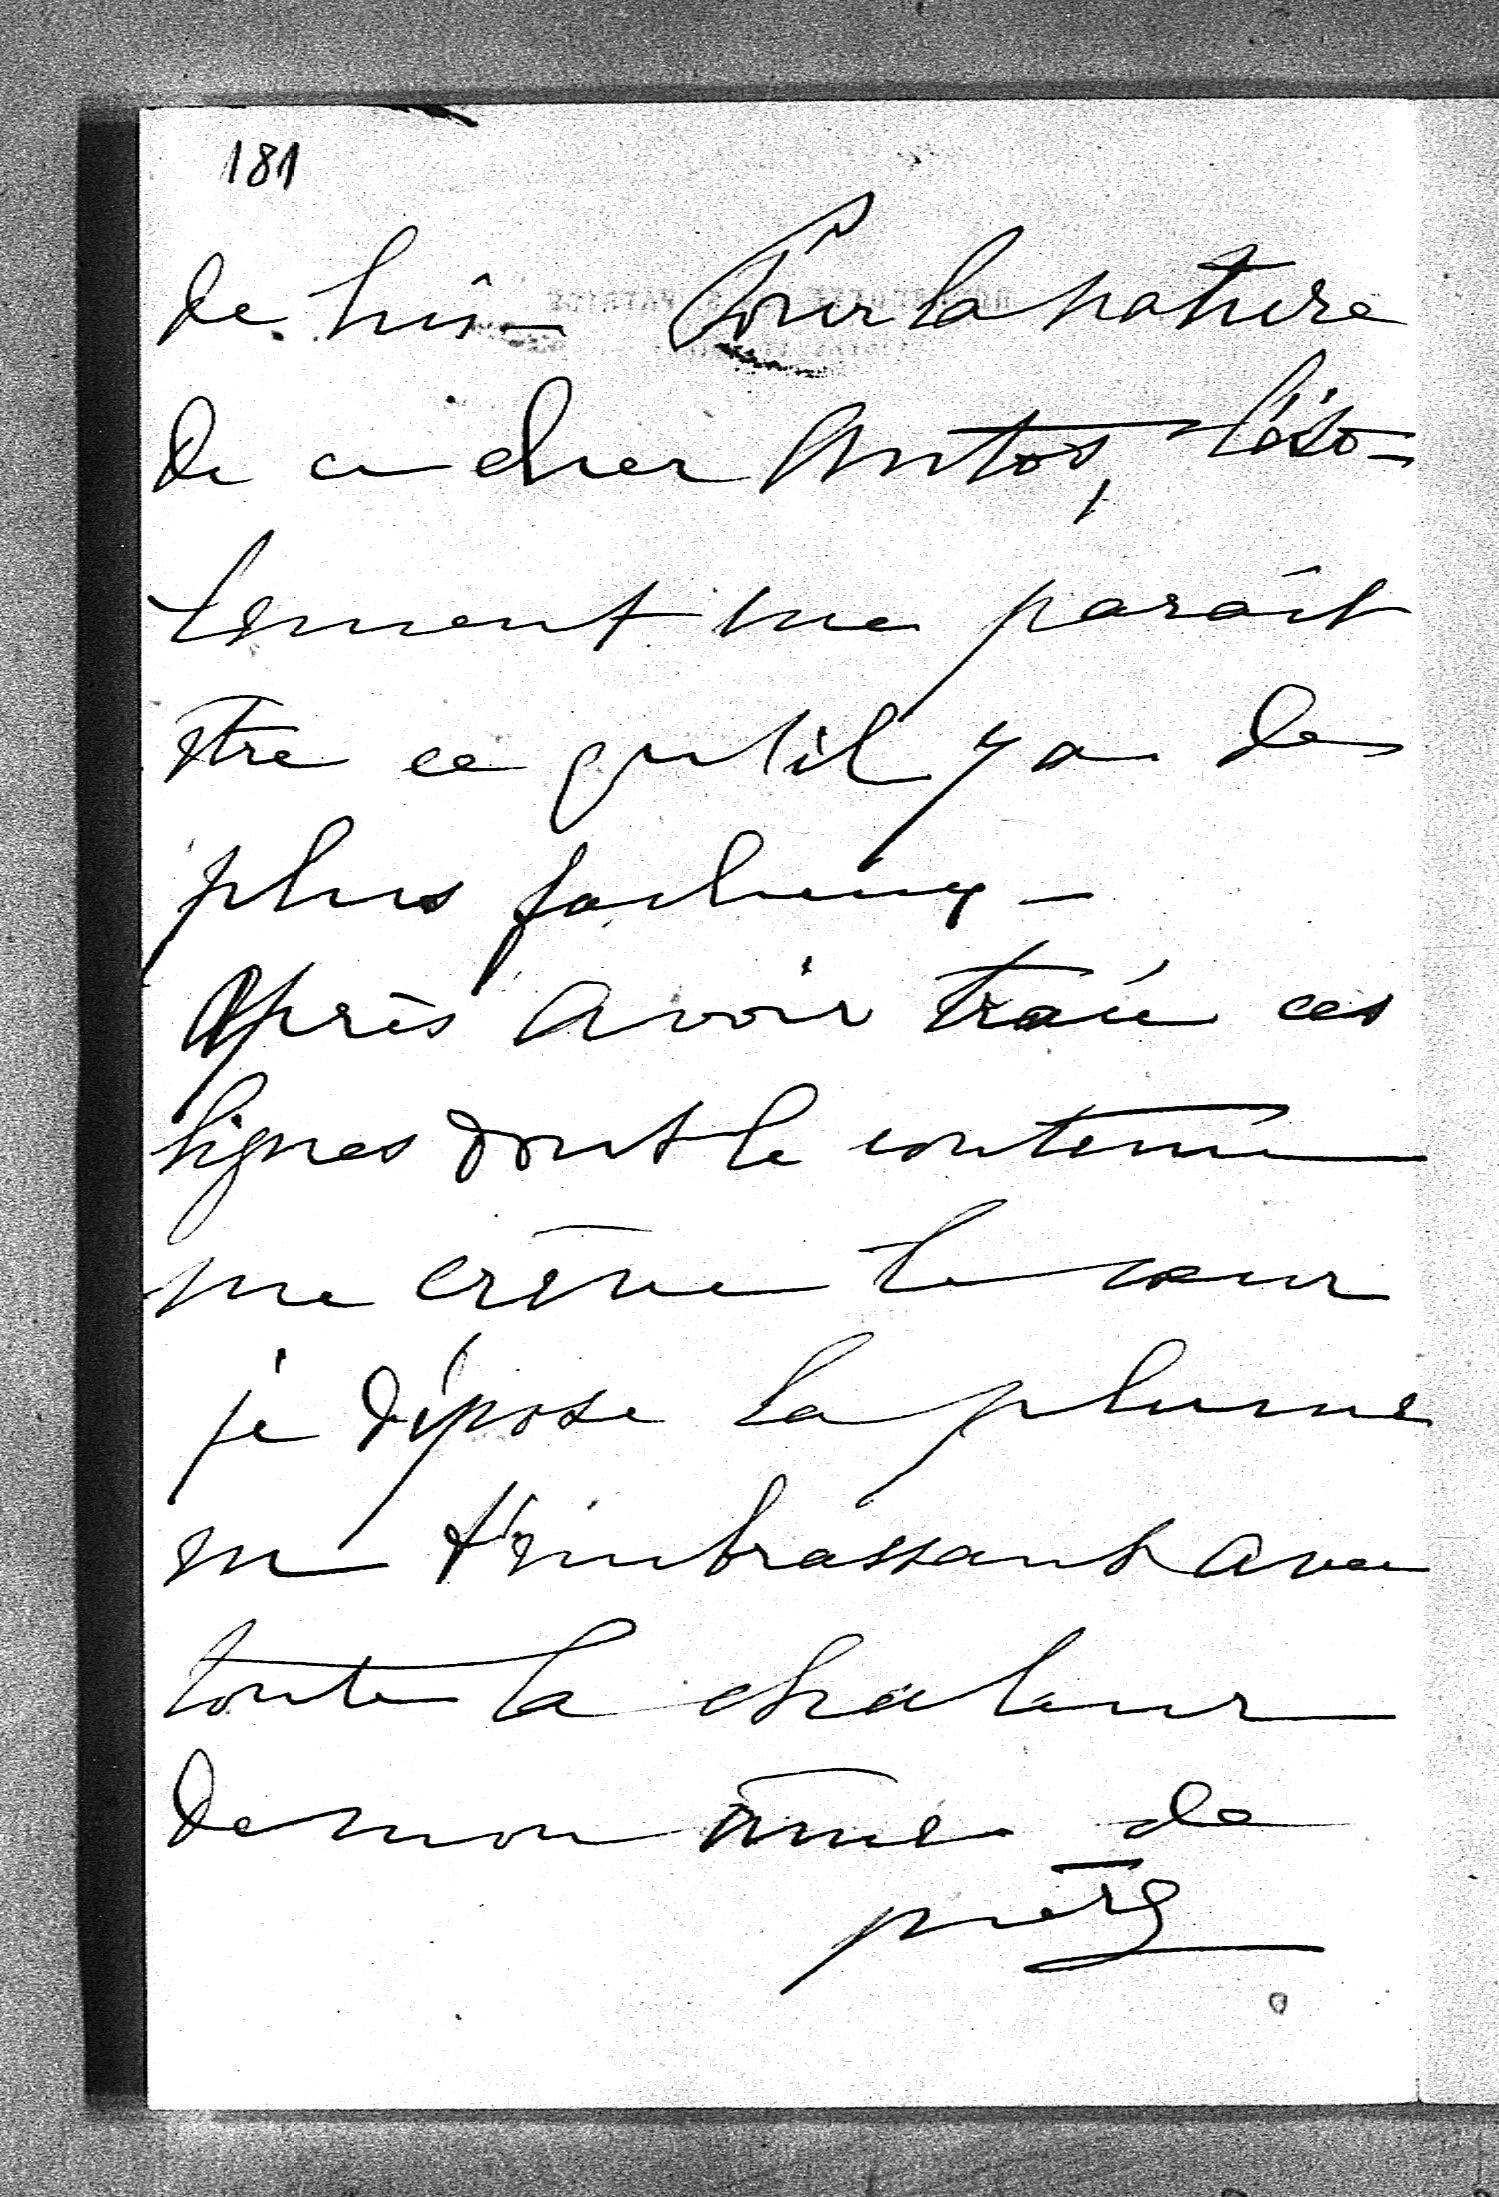 181
de lui — Pour la nature
de ce cher Antos, l'iso=
lement me parait
être ce qu'il y a de
plus facheux —
Après avoir tracé ces
lignes dont le contenu
me crêve le cœur
je dépose la plume
en t'embrassant avec
toute la chaleur
de mon âme de
père